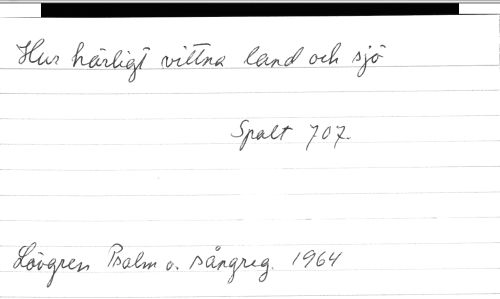 Hur härligt vittna land och sjö
Spalt 707.
Lövgren Psalm o. sångreg. 1964